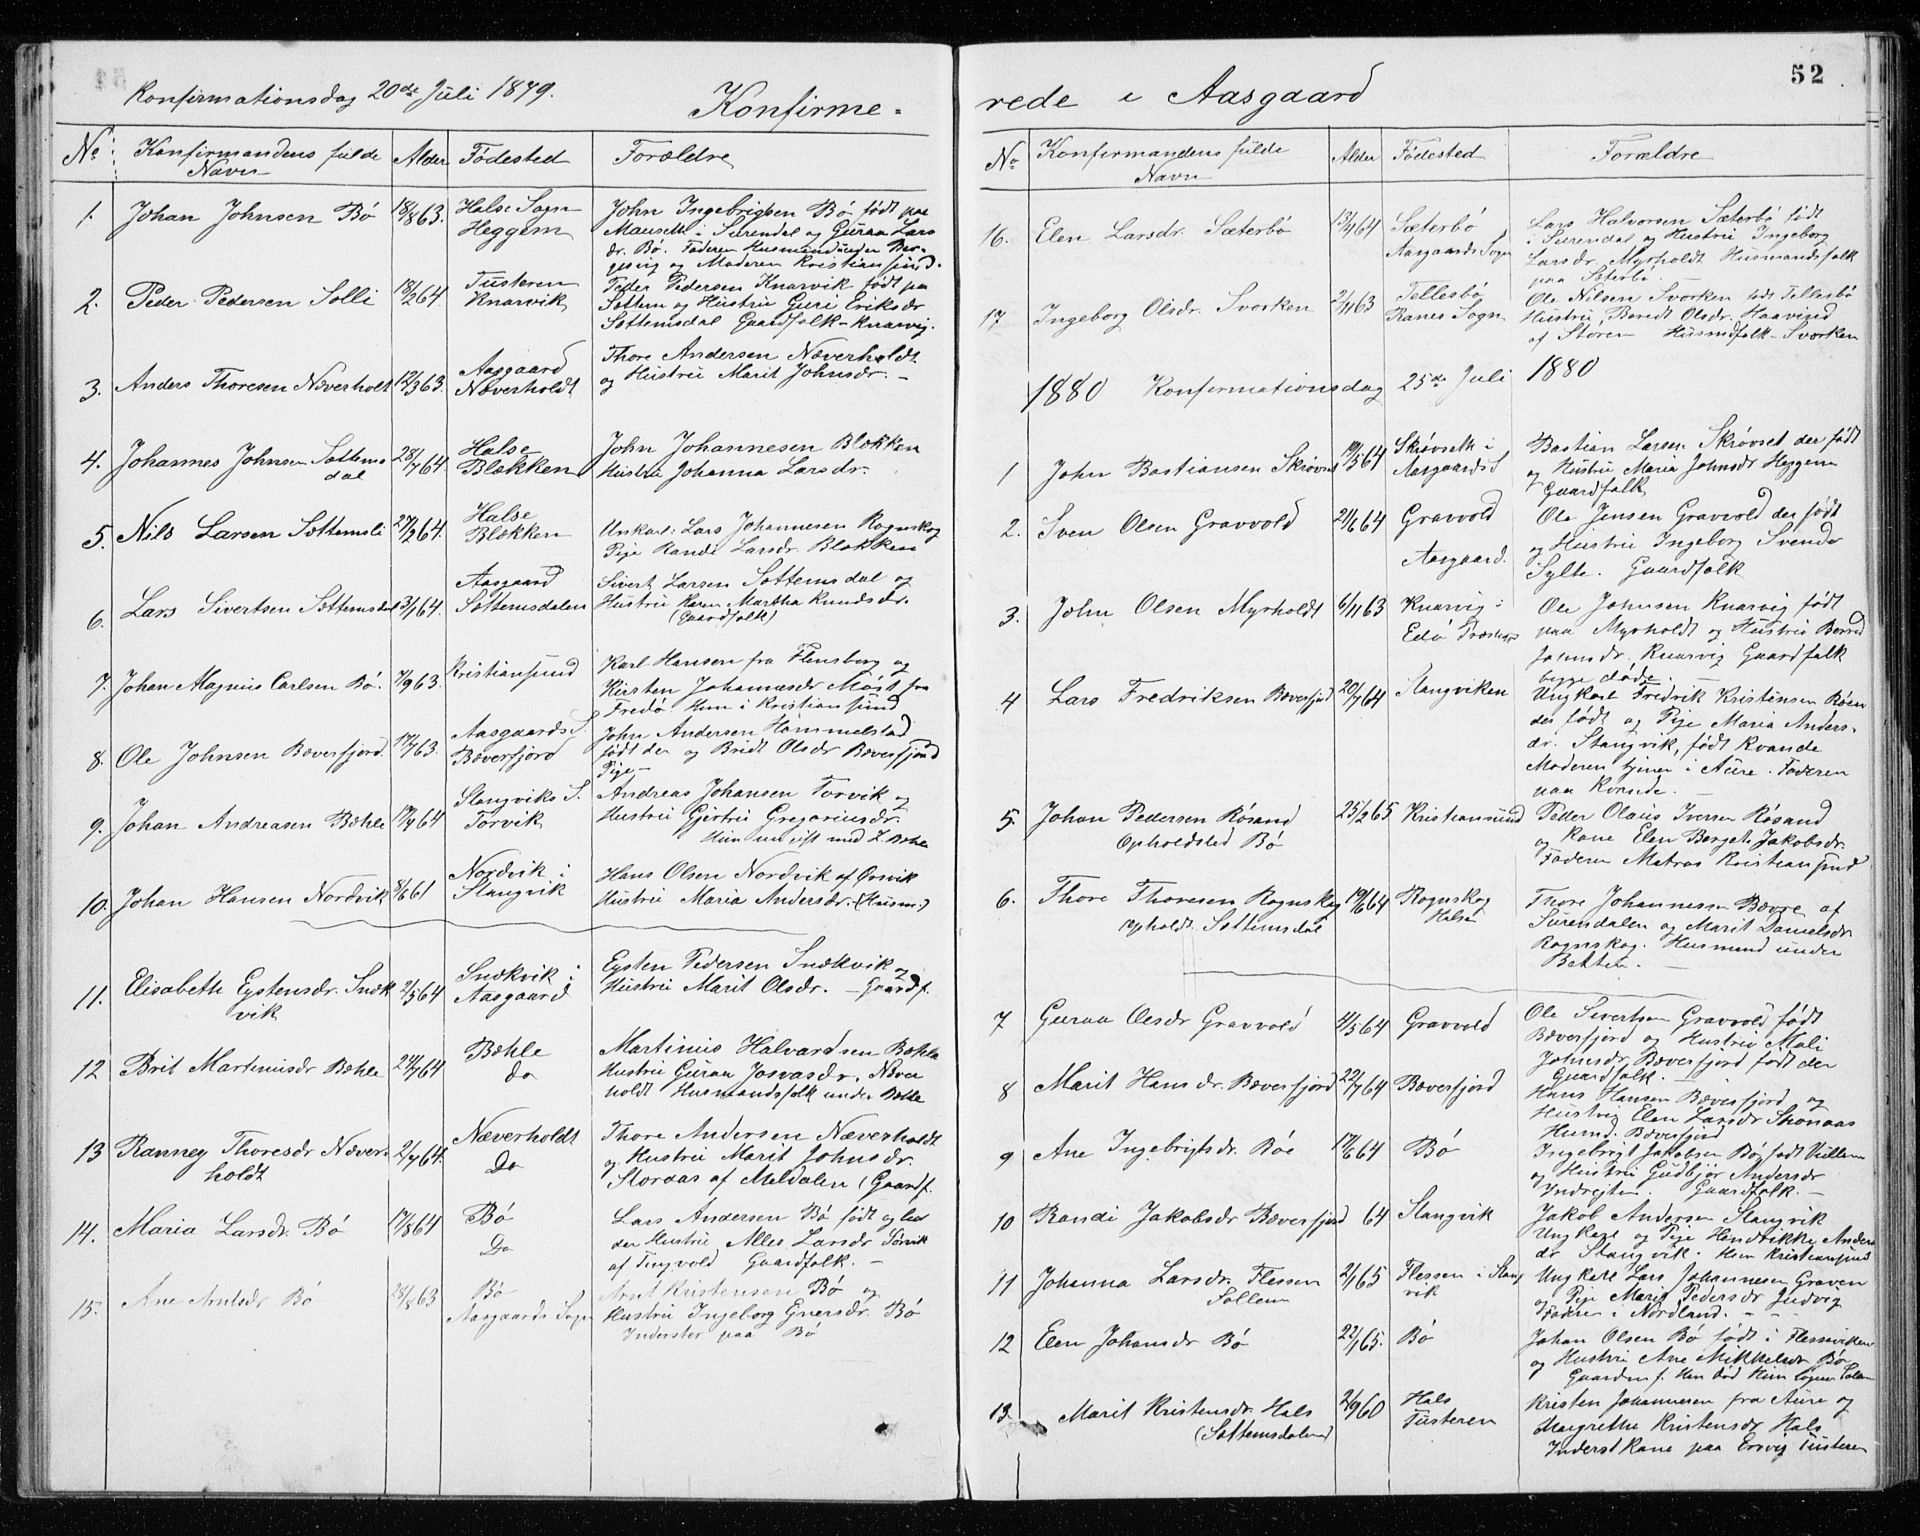 Konfirmationsdag 20de Juli 1879.
Konfirme=
No Konfirmandens fulde Navn Alder Fødested Forældre
1. Johan Johnsen Bø 18/8 63. Halse Sogn Heggem
John Ingebrigtsen Bø født paa
Mauseth i Surendal og Guraa Lars
dr. Bø. Faderen Husmand under Ber-
gsvig og Moderen Kristiansund.
2. Peder Pedersen Solli 18/2 64. Tusteren Knarvik
Peder Pedersen Knarvik født paa
Sottem og Hustru Guri Eriksdr
Søttemsdal Gaardfolk - Knarvig.
3. Anders Thoresen Næverholt 12/3 63. Aasgaard Næverholdt
Thore Andersen Næverholdt
og Hustru Marit Johnsdr. -
4. Johannes Johnsen Søttems dal 28/7 64. Halse Blekken
John Johannesen Blekken
Hustru Johanna Larsdr.
5. Nils Larsen Søttemsli 27/2 64. Halse Blekken
Unkarl: Lars Johannesen Rognskog
Pige Randi Larsdr. Blekken
6. Lars Sivertsen Søttemsdal 3/1 64. Aasgaard Søttemsdalen
Sivert Larsen Søttemsdal og
Hustru Karen Martha Knudsdr.
(Gaardfolk)
7. Johan Magnus Carlsen Bø. 9 63. Kristiansund
Karl Hansen fra Flensborg og
Kirsten Johannesdr Møst fra
Fredø. Hun i Kristiansund
8. Ole Johnsen Bæverfjord. 17/7 63. Aasgaards S. Bæverfjord
John Andersen Hammelstad
født der og Bridt Olsdr Bæverfjord
Pige -
9. Johan Andreasen Bæhle 17/4 64 Stangviks S. Torvik
Andreas Johansen Torvik og
Hustru Gjertru Gregoriusdr.
Hun nu gift med L Bæhle
10. Johan Hansen Nordvik 8/6 61 Nordvik i Stangvik
Hans Olsen Nordvik af Ørsvik
Hustru Maria Andersdr. (Husm.)
11. Elisabeth Eystensdr. Snæk vik 2/5 64 Snækvik i Aasgaard
Eysten Pedersen Snækvik og
Hustru Marit Olsdr. - Gaardf.
12 Brit Martinusdr Bæhle 24/7 64 Bæhle Do
Martinus Halvardsen Bæhle
Hustru Guraa Josvasdr. Næver
holdt Husmandsfolk under Bæhle
13 Ranney Thoresdr Næver- holdt 2/7 64. Næverholdt Do
Thore Andersen Næverholdt
og Hustru Marit Johnsdr.
Stordas af Meldalen (Gaardf.
14. Maria Larsdr. Bø 17/8 64 Bø Do
Lars Andersen Bø født og bor
der Hustru Alles Larsdr Torvik
af Tingvold Gaardfolk. -
15. Ane Arntsdr Bø 28/8 63 Bø Aasgaards Sogn
Arnt Kristensen Bø og
Hustru Ingeborg Gunersdr. Bø
Inderster paa Bø
52
rede i Aasgaard
No Konfirmandens fulde Navn Alder Fødested Forældre
16. Elen Larsdr. Sæterbø 13/4 64 Sæterbø Aasgaards Sogn
Lars Halvorsen Sæterbø født
i Surendal og Hustru Ingeborg
Larsdr. Myrholdt Husmandsfolk
paa Sæterbø. -
17 Ingeborg Olsdr. Svorken 2/11 63 Tellesbø Ranes Sogn
Ole Nilsen Svorken født Tellesbø
Hustru Beredt Olsdr. Haavind
af Støren Husmdfolk - Svorken
1880 Konfirmationsdag 25de Juli 1880
1 John Bastiansen Skrøvset 19/5 64 Skrøvseth i Aasgaards S
Bastian Larsen Skrøvset der født
og Hustru Maria Johnsdr Heggem
Gaardfolk
2. Sven Olsen Gravvold 21/6 64 Gravvold Aasgaard.
Ole Jensen Gravvold der født
og Hustru Ingeborg Svendsdr
Sylte. Gaardfolk
3. John Olsen Myrholdt 6/11 63 Knarvig i Edø Præstegj
Ole Johnsen Knarvig født
paa Myrholdt og Hustru Bereth
Johnsdr. Knarvig Gaardfolk
begge døde. -
4 Lars Fredriksen Bæverfjord 20/7 64 Stangviken
Ungkarl Fredrik Kristensen Røen
der født og Pige Maria Anders-
dr. Stangvik, født Kvande
Moderen tjener i Aure. Faderen
paa Kvande. -
5. Johan Pedersen Røsand 25/2 65 Kristiansund
Opholdsted Bø
Peder Olaus Iversen Røsand
og Kone Elen Bergete Jakobsdr.
Faderen Matros Kristiansund
6. Thore Thoresen Rognskog 19/6 64 Rognskog Halse
Opholdt. Søttemsdal
Thore Johannessen Bævre af
Surendalen og Marit Danielsdr
Rognskog. Husmand under
Bakken. -
7 Guraa Olsdr Gravvold 4/5 64 Gravvold
Ole Sivertsen Gravvold født
Bæverfjord og Hustru Mali
Johnsdr. Bæverfjord født der
Gaardfolk. -
8 Marit Hansdr. Bæverfjord 22/7 64 Bæverfjord
Hans Hansen Bæverfjord og
Hustru Elen Larsdr Skonaas
Husmd. Bæverfjord
9 Ane Ingebrigtsdr. Bøe 17/6 64 Bø
Ingebrigt Jakobsen Bø født Vullum
og Hustru Gudbjør Andersdr
Indrejten. Gaardfolk. -
10 Randi Jakobsdr Bæverfjord 64 Stangvik
Jakob Andersen Stangvik
Ungkarl og Pige Hendrikke Anders
dr Stangvik. Hun Kristiansund
11 Johanna Larsdr. Flessen Sollem 2/1 65 Flessen i Stang vik
Ungkarl Lars Johannesen Graven
og Pige Marit Pedersdr Judvig
Faderen i Nordland. -
12 Elen Johansdr Bø 22/1 65. Bø
Johan Olsen Bø født i Flessviken
og Hustru Ane Mikkelsdr Bø
Gaardmf. Han død Hun
13. Marit Kristensdr. Hals 2/9 60 Hals Tusteren
(Søttemsdalen)
Kristen Johannesen fra Aure og
Margrethe Kristensdr Hals
Inderst Kone paa Ersvig Tusteren